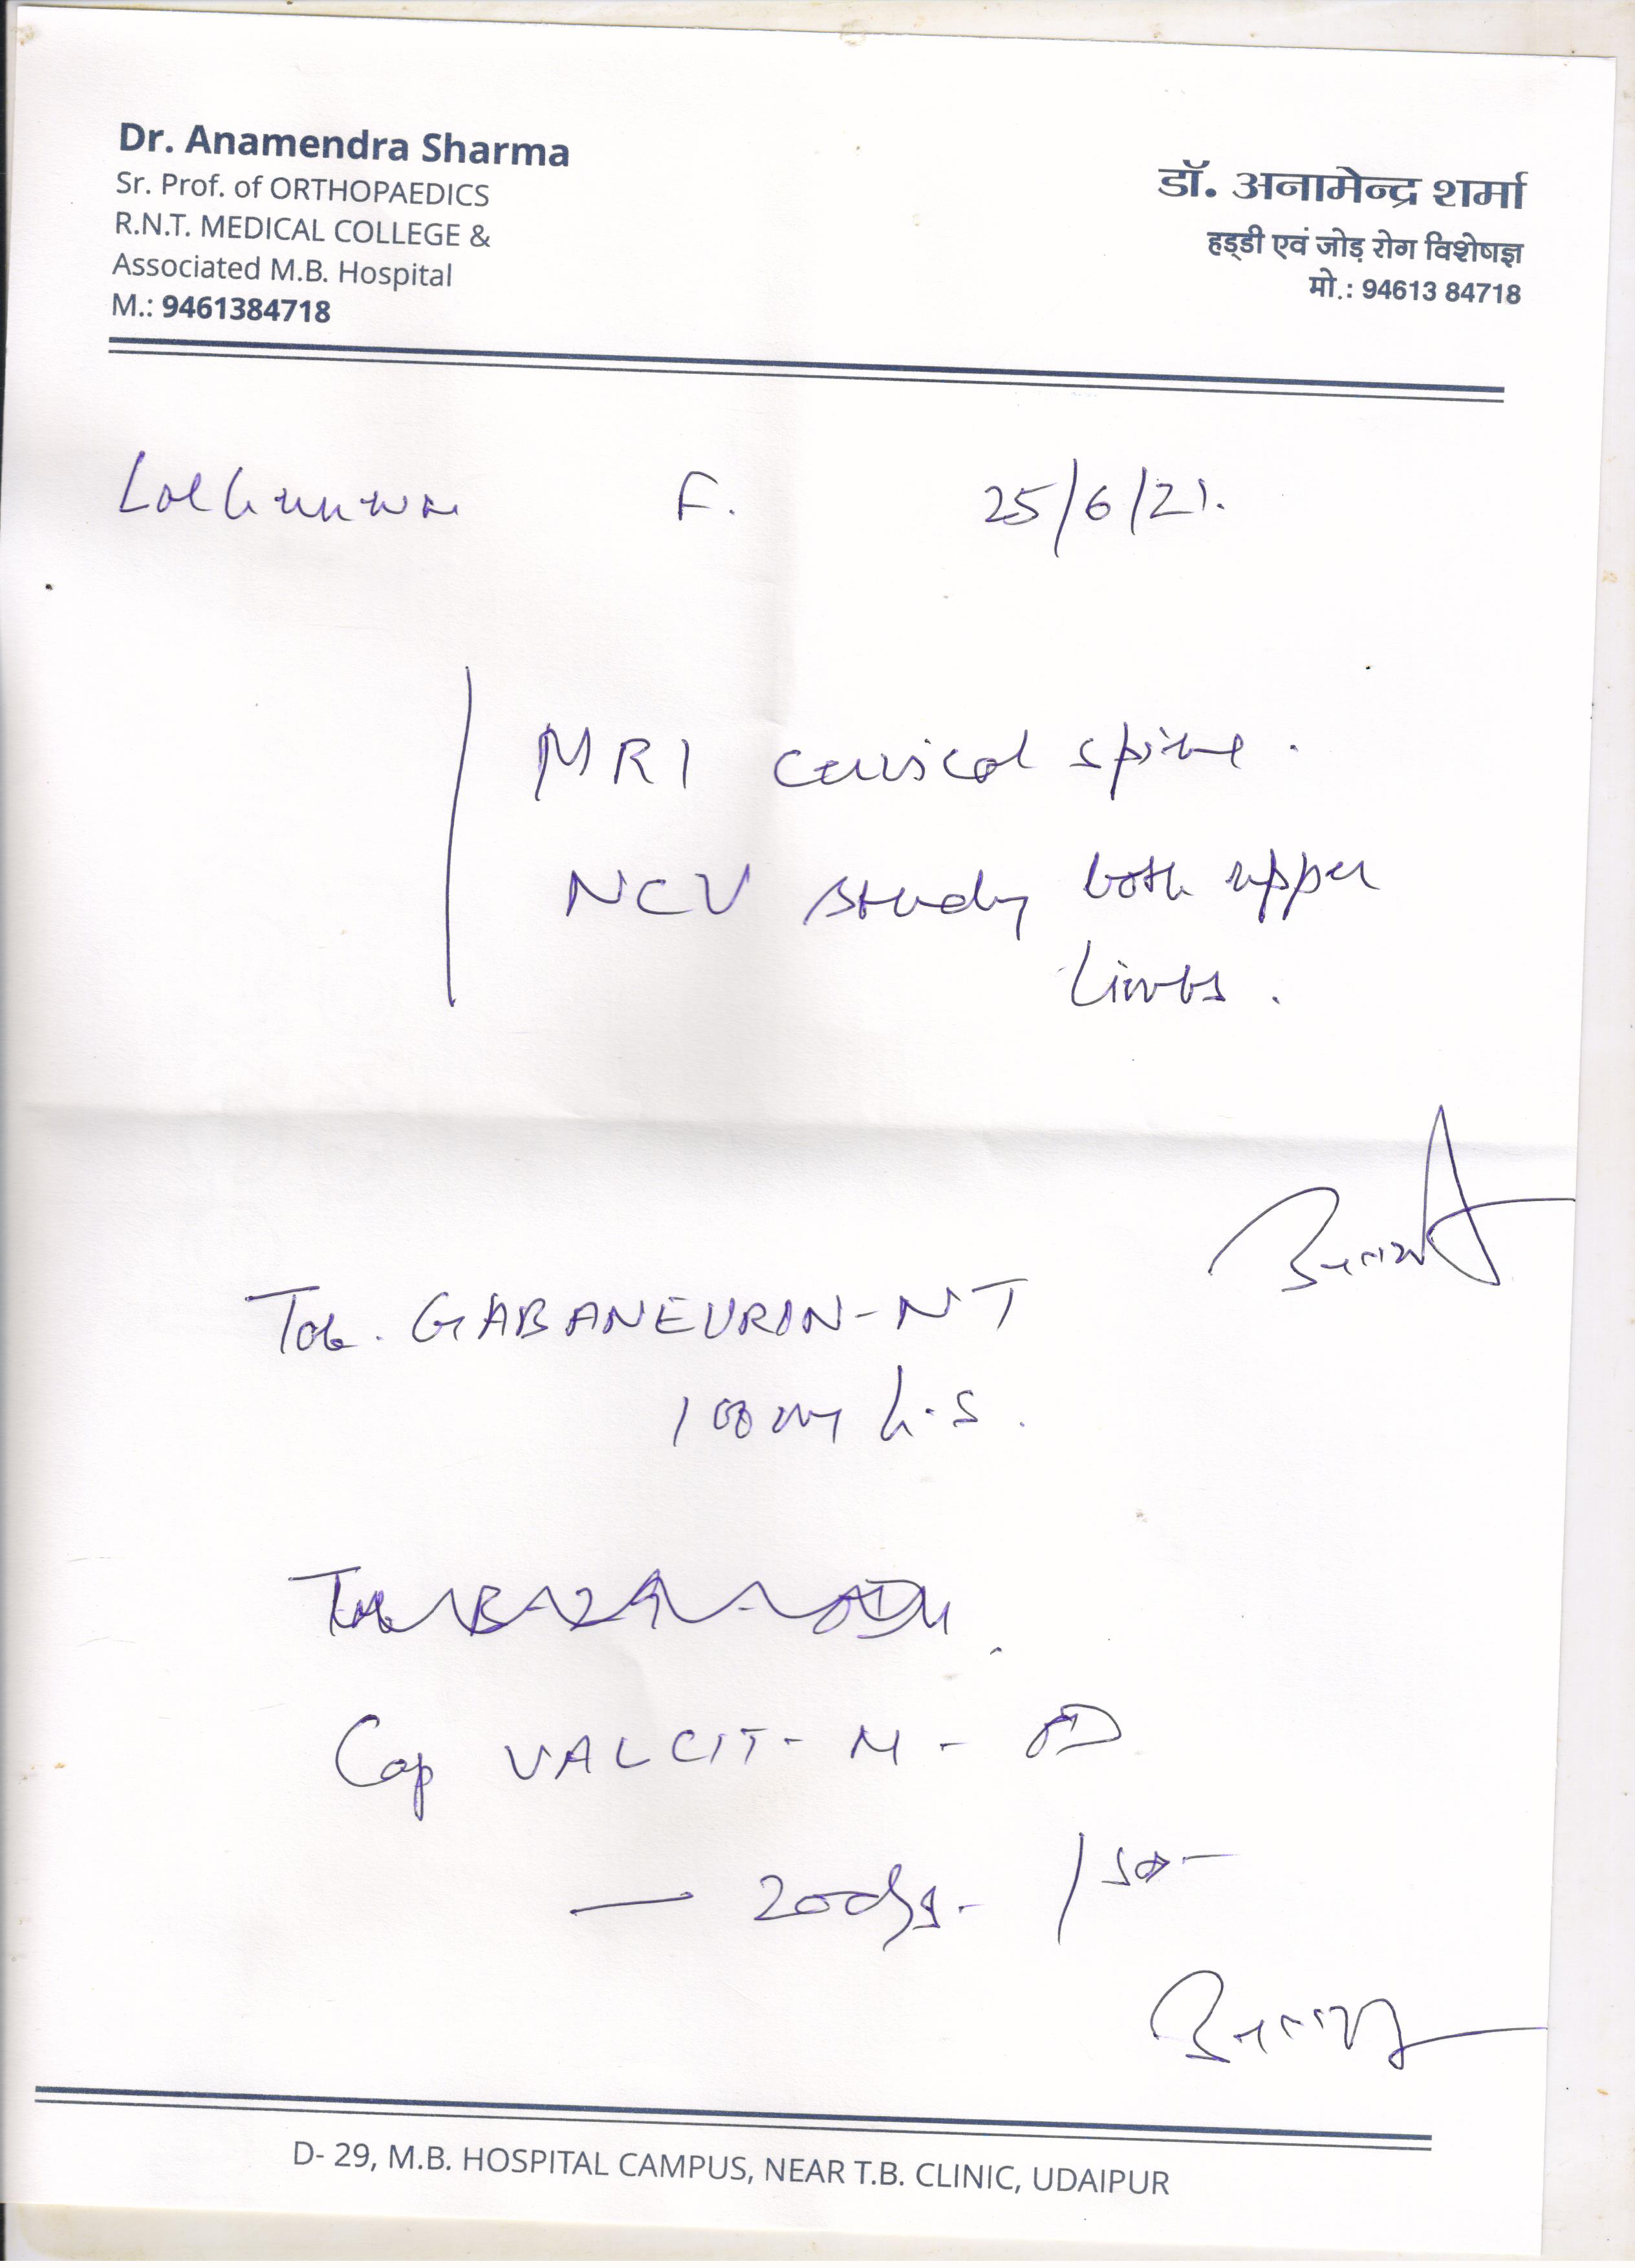 Dr. Anamendra Sharma
Sr. Prof. of ORTHOPAEDICS
R.N.T. MEDICAL COLLEGE &
Associated M.B. Hospital
M.: 9461384718
डॉ. अनामेन्द्र शर्मा
हड्डी एवं जोड़ रोग विशेषज्ञ
मो.: 94613 84718
F. 25/6/21.
MRI cervical spine.
NCV study both upper
Limbs.
Tab. GABANEURON-NT
100mg h.s.
Cap VALCIT-M - OD
— 20 days -
D- 29, M.B. HOSPITAL CAMPUS, NEAR T.B. CLINIC, UDAIPUR